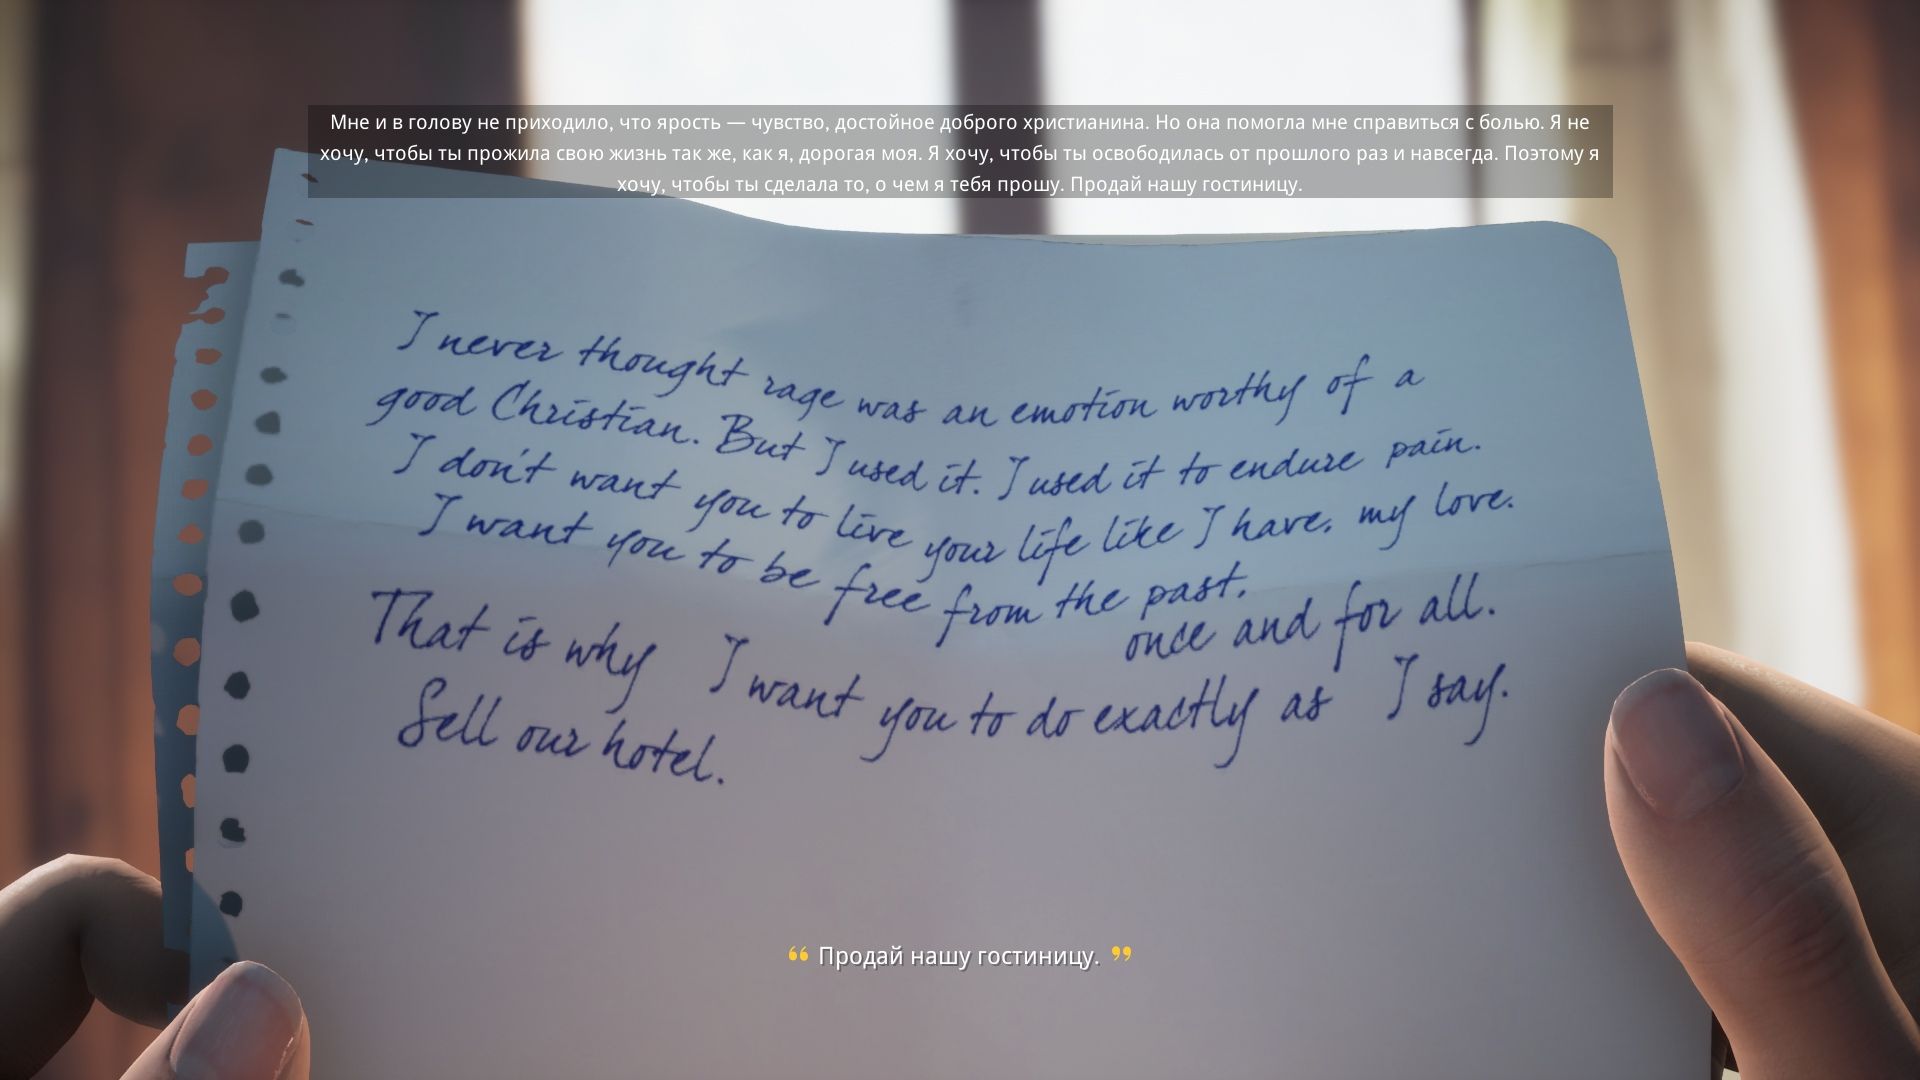 Мне и в голову не приходило, что ярость — чувство, достойное доброго христианина. Но она помогла мне справиться с болью. Я не
хочу, чтобы ты прожила свою жизнь так же, как я, дорогая моя. Я хочу, чтобы ты освободилась от прошлого раз и навсегда. Поэтому я
хочу, чтобы ты сделала то, о чем я тебя прошу. Продай нашу гостиницу.
I never thought rage was an emotion worthy of a
good Christian. But I used it. I used it to endure pain.
I don't want you to live your life like I have, my love.
I want you to be free from the past,
once and for all.
That is why I want you to do exactly as I say.
Sell our hotel.
“ Продай нашу гостиницу. ”